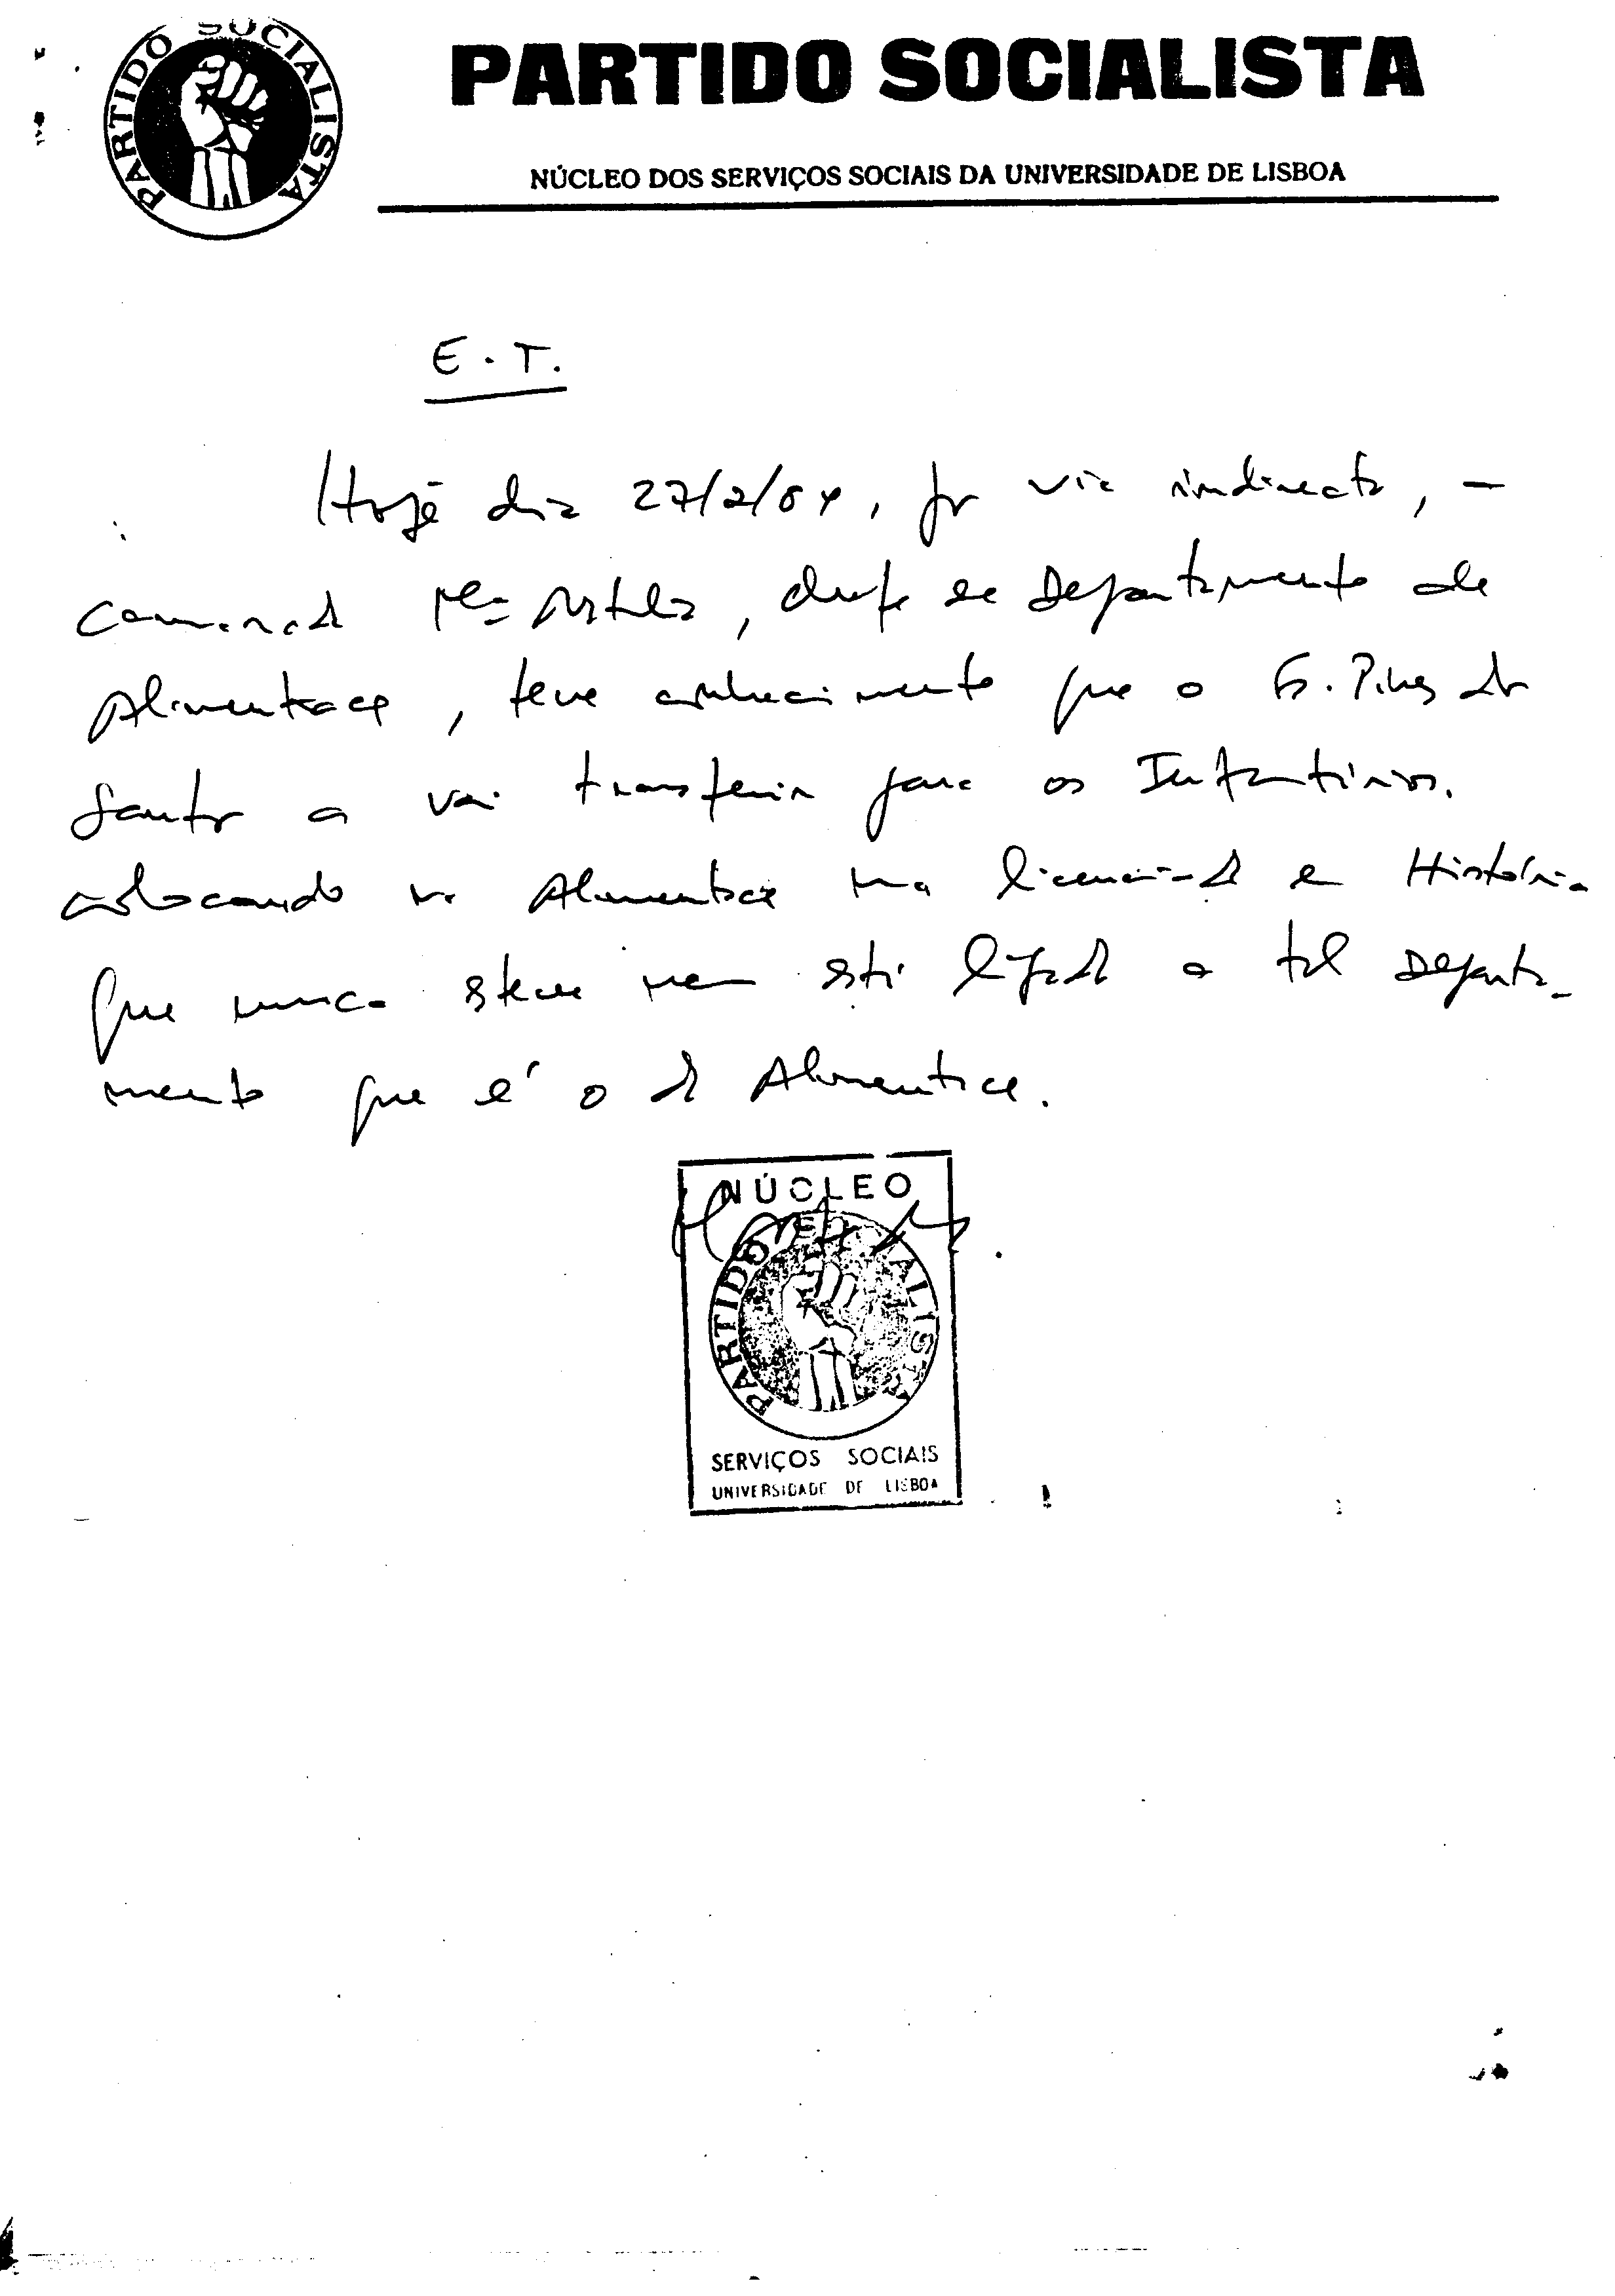 PARTIDO SOCIALISTA
PARTIDO SOCIALISTA
NÚCLEO DOS SERVIÇOS SOCIAIS DA UNIVERSIDADE DE LISBOA
E.T.
Hoje dia 27/2/84, por via indirecta, a
camarada Mª, chefe de Departamento de
Alimentação, teve conhecimento que o G. Pires dos
Santos a vai transferir para os Infantários.
colocando na Alimentação uma licenciada em História
que nunca esteve nem está ligada a tal Departa-
mento que é o da Alimentação.
NÚCLEO
PARTIDO SOCIALISTA
SERVIÇOS SOCIAIS
UNIVERSIDADE DE LISBOA